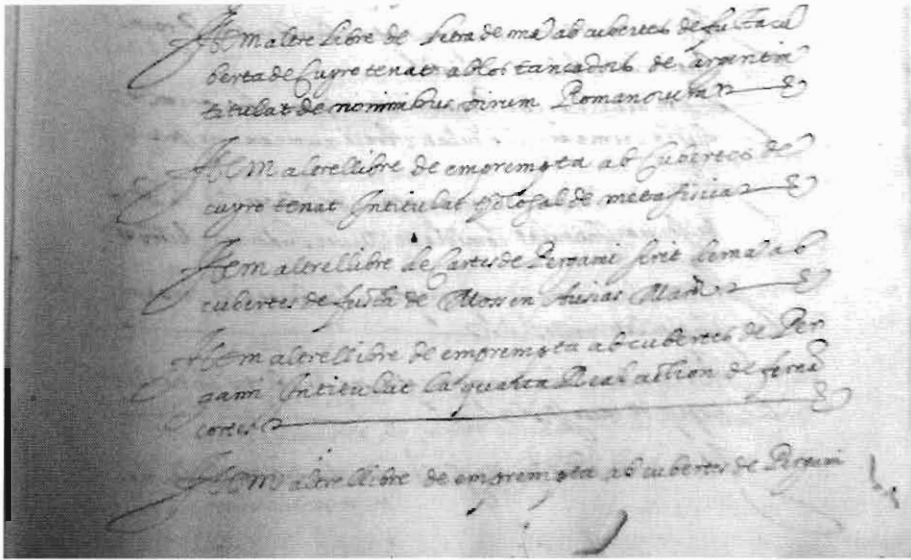 Item altre libre de letra de mā ab cubertes de fusta cu
berta de cuyro tenat ab los tancadors de largentin
titulat de nominibus virum Romanorum
Item altre llibre de empremta ab cubertes de
cuyro tenat Intitulat de metafisica
Item altre llibre de Cartes de Pergami scrit de ma ab
cubertes de fusta de Mossen Ausias March
Item altre llibre de empremta ab cubertes de Per
gami Intitulat la quarta Relaction de ferrā
cortes
Item altre llibre de empremta ab cubertes de Pergami